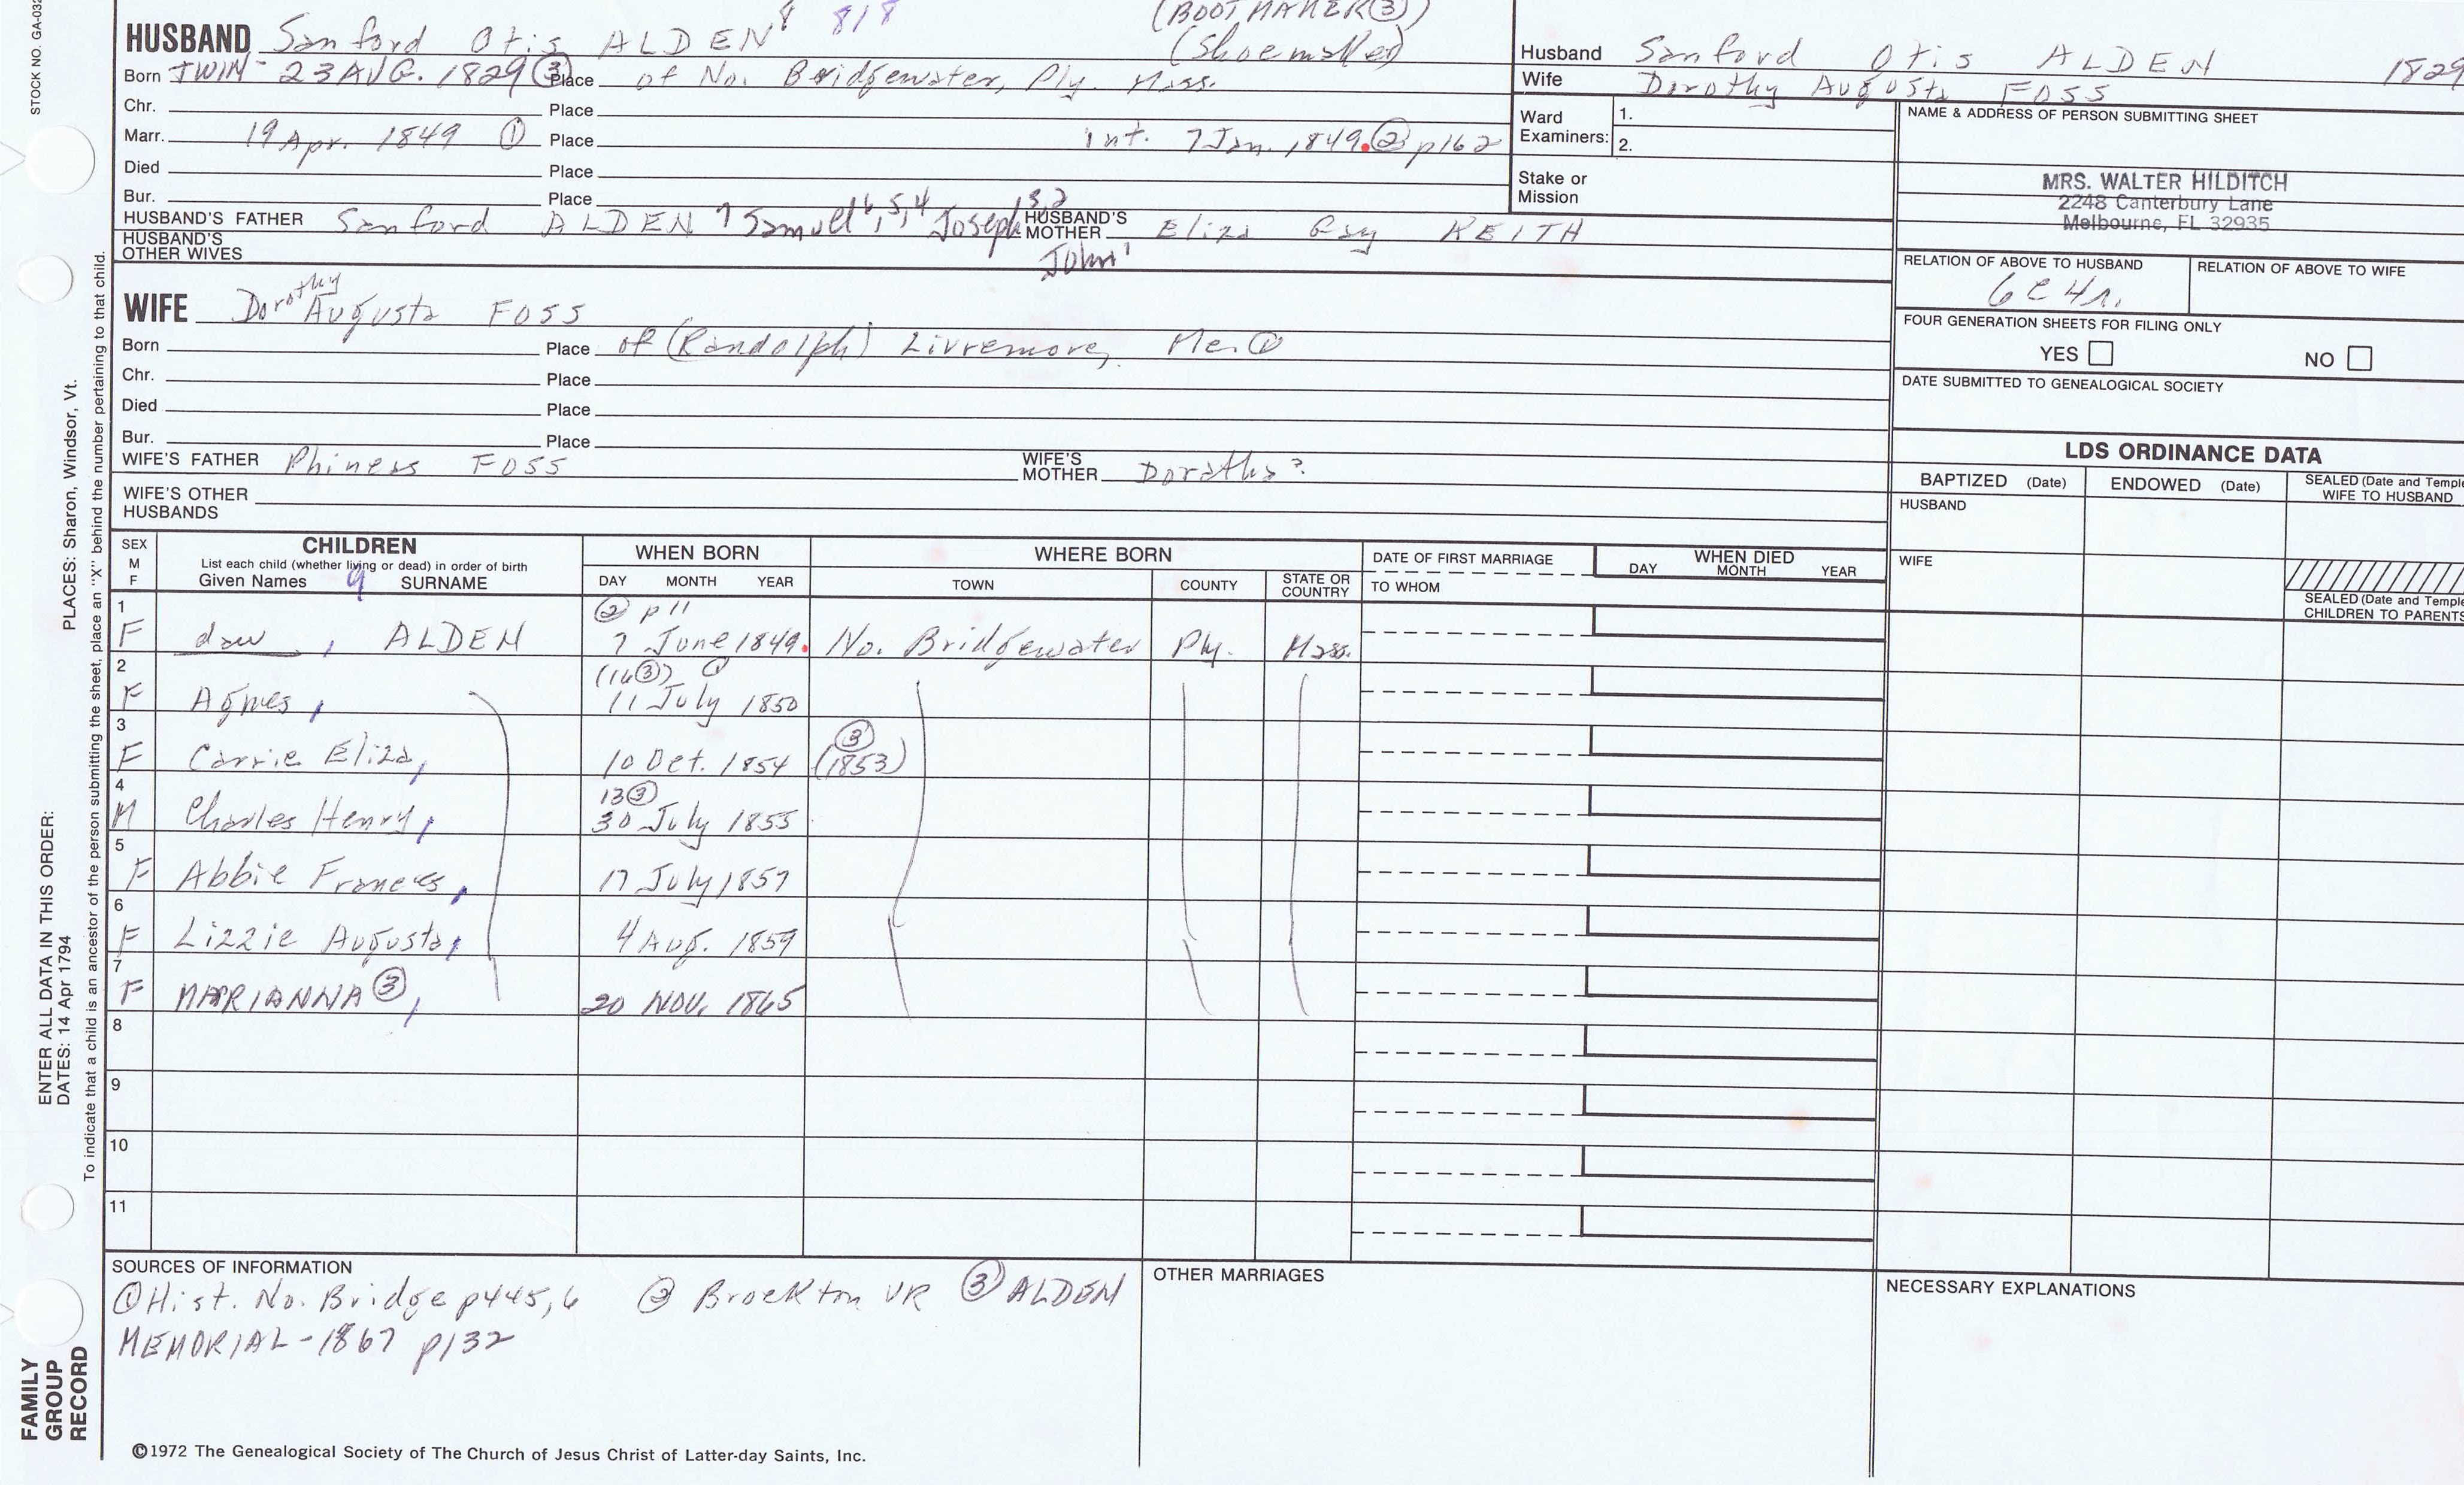 STOCK NO. GA-032
(BOOT MAKER ③)
HUSBAND Sanford Otis ALDEN⁸ 818 (Shoemaker)
Born TWIN - 23 AUG. 1829 ③ Place of No. Bridgewater, Ply. Mass.
Chr. Place
Marr. 19 Apr. 1849 ① Place int. 7 Jan. 1849. ② p162
Died Place
Bur. Place
HUSBAND'S FATHER Sanford ALDEN⁷ Samuel⁶,⁵,⁴ Joseph³,² John¹ HUSBAND'S MOTHER Eliza Gay KEITH
HUSBAND'S OTHER WIVES
WIFE Dorothy Augusta FOSS
Born Place of (Randolph) Livremore, Me. ①
Chr. Place
Died Place
Bur. Place
WIFE'S FATHER Phineas FOSS WIFE'S MOTHER Doraths?
WIFE'S OTHER HUSBANDS
Husband Sanford Otis ALDEN 1829
Wife Dorothy Augusta FOSS
Ward Examiners: 1.
2.
Stake or Mission
NAME & ADDRESS OF PERSON SUBMITTING SHEET
MRS. WALTER HILDITCH
2248 Canterbury Lane
Melbourne, FL 32935
RELATION OF ABOVE TO HUSBAND RELATION OF ABOVE TO WIFE
6C4r.
FOUR GENERATION SHEETS FOR FILING ONLY
YES NO
DATE SUBMITTED TO GENEALOGICAL SOCIETY
LDS ORDINANCE DATA
BAPTIZED (Date) ENDOWED (Date) SEALED (Date and Temple WIFE TO HUSBAND
HUSBAND
WIFE
SEALED (Date and Temple CHILDREN TO PARENTS
SEX M F CHILDREN WHEN BORN WHERE BORN DATE OF FIRST MARRIAGE WHEN DIED
List each child (whether living or dead) in order of birth
Given Names 9 SURNAME DAY MONTH YEAR TOWN COUNTY STATE OR COUNTRY TO WHOM DAY MONTH YEAR
② p11
1 F dau, ALDEN 7 June 1849. No. Bridgewater Ply. Mass.
(16③) ①
2 F Agnes, 11 July 1850
3 F Carrie Eliza, 10 Oct. 1854 (1853) ③
13③
4 M Charles Henry, 30 July 1855
5 F Abbie Frances, 17 July 1857
6 F Lizzie Augusta, 4 Aug. 1859
7 F MARIANNA ③, 20 NOV. 1865
8
9
10
11
SOURCES OF INFORMATION
① Hist. No. Bridge p445,6 ② Brockton VR ③ ALDEN
MEMORIAL - 1867 p132
OTHER MARRIAGES
NECESSARY EXPLANATIONS
©1972 The Genealogical Society of The Church of Jesus Christ of Latter-day Saints, Inc.
FAMILY GROUP RECORD
ENTER ALL DATA IN THIS ORDER:
DATES: 14 Apr 1794 PLACES: Sharon, Windsor, Vt.
To indicate that a child is an ancestor of the person submitting the sheet, place an "X" behind the number pertaining to that child.